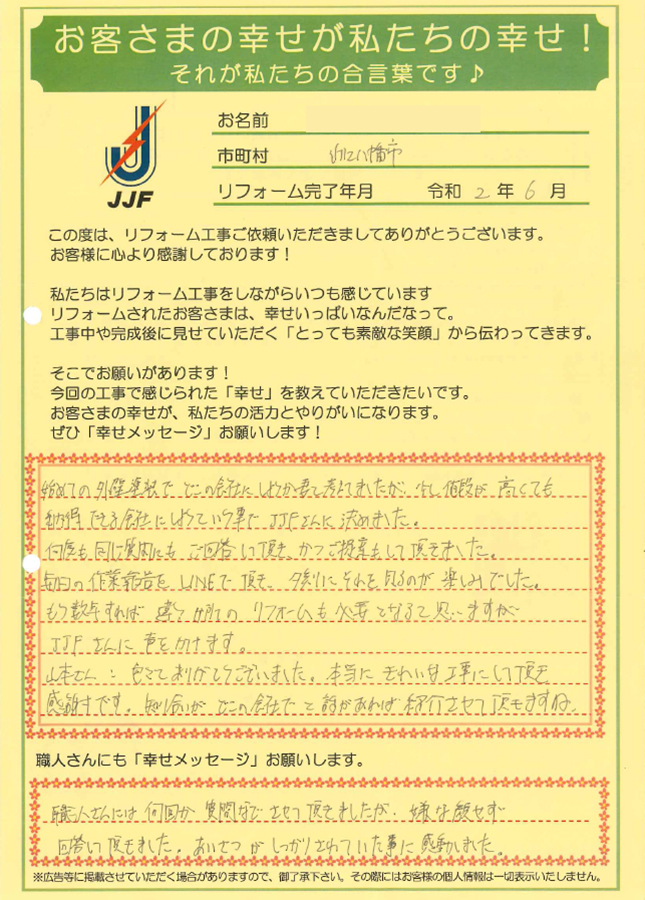 お客さまの幸せが私たちの幸せ！
それが私たちの合言葉です♪
JJF
お名前
市町村 近江八幡市
リフォーム完了年月 令和 2 年 6 月
この度は、リフォーム工事ご依頼いただきましてありがとうございます。
お客様に心より感謝しております！
私たちはリフォーム工事をしながらいつも感じています
リフォームされたお客さまは、幸せいっぱいなんだなって。
工事中や完成後に見せていただく「とっても素敵な笑顔」から伝わってきます。
そこでお願いがあります！
今回の工事で感じられた「幸せ」を教えていただきたいです。
お客さまの幸せが、私たちの活力とやりがいになります。
ぜひ「幸せメッセージ」お願いします！
始めての外壁塗装で どこの会社にしようか 考えてましたが、少し値段が高くても
納得できる会社にしようという事で JJFさんに決めました。
何度も同じ質問にも ご回答いて頂き、かつご提案もして頂きました。
毎日の作業報告をLINEで頂き、夕刻にそれを見るのが楽しみでした。
もう数年すれば 違う のリフォームも必要となると思いますが
JJFさんに声をかけます。
山本さん ありがとうございました。本当にきれいな工事にして頂き
感謝です。知り合いが どこの会社で と話があれば紹介させて頂きますね。
職人さんにも「幸せメッセージ」お願いします。
職人さんには何回か質問などさせて頂きましたが、嫌な顔せず
回答いて頂きました。あいさつがしっかりされていた事に感動しました。
※広告等に掲載させていただく場合がありますので、御了承下さい。その際にはお客様の個人情報は一切表示いたしません。